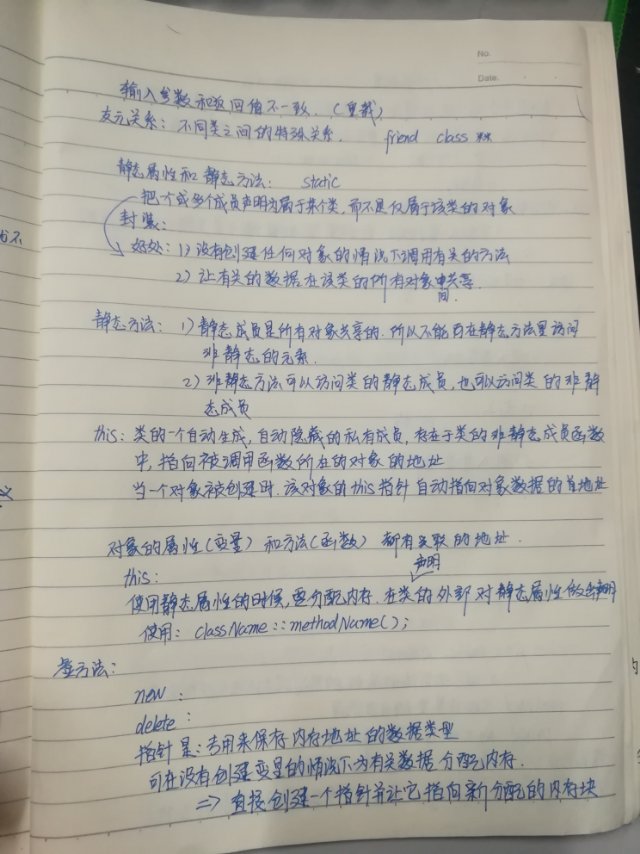 No.
Date.
输入参数和返回值不一致.(重载)
友元关系: 不同类之间的特殊关系. friend class **
静态属性和静态方法: static
把一个或多个成员声明为属于某个类,而不是仅属于该类的对象
封装:
好处: 1) 没有创建任何对象的情况下调用有关的方法
2) 让有关的数据在该类的所有对象中共享.
间.
静态方法: 1) 静态成员是所有对象共享的.所以不能在静态方法里访问
非静态的元素.
2) 非静态方法可以访问类的静态成员,也可以访问类的非静
态成员
this: 类的一个自动生成,自动隐藏的私有成员,存在于类的非静态成员函数
中,指向被调用函数所在的对象的地址
当一个对象被创建时.该对象的this指针自动指向对象数据的首地址
对象的属性(变量)和方法(函数)都有关联的地址.
声明
this:
使用静态属性的时候,要分配内存.在类的外部对静态属性做声明
使用: className::methodName();
方法:
new:
delete:
指针是:专用来保存内存地址的数据类型
可在没有创建变量的情况下为有关数据分配内存.
=> 直接创建一个指针并让它指向新分配的内存块